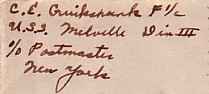 C.E. Cruikshank F 1/c
U.S.S. Melville Div III
c/o Postmaster
New York